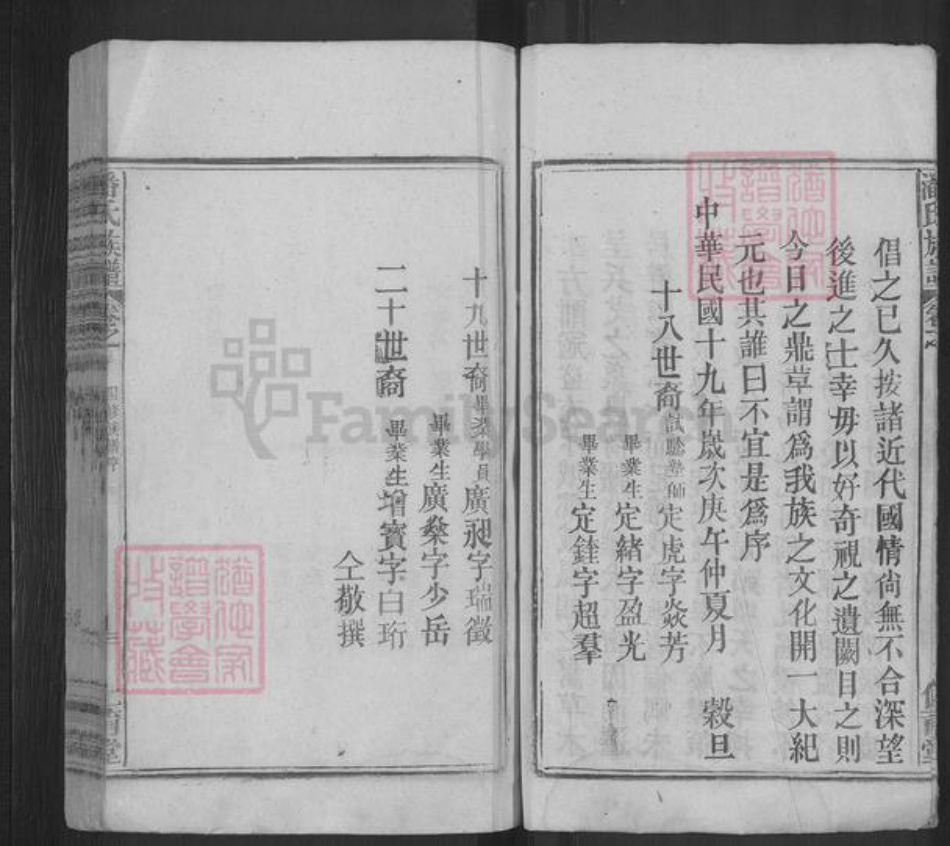 潘氏族譜
倡之已久按諸近代國情尚無不合深望
後進之士幸毋以好奇視之遺闕目之則
今日之鼎草謂爲我族之文化開一大紀
元也其誰曰不宜是爲序
中華民國十九年歲次庚午仲夏月 穀旦
十八世裔試驗塾師定虎字燚芳
畢業生定緒字盈光
畢業生定銓字超羣
十九世裔畢業學員廣昶字瑞徵
畢業生廣燊字少岳
二十世裔畢業生增寶字白珩
仝敬撰
潘氏族譜
FamilySearch